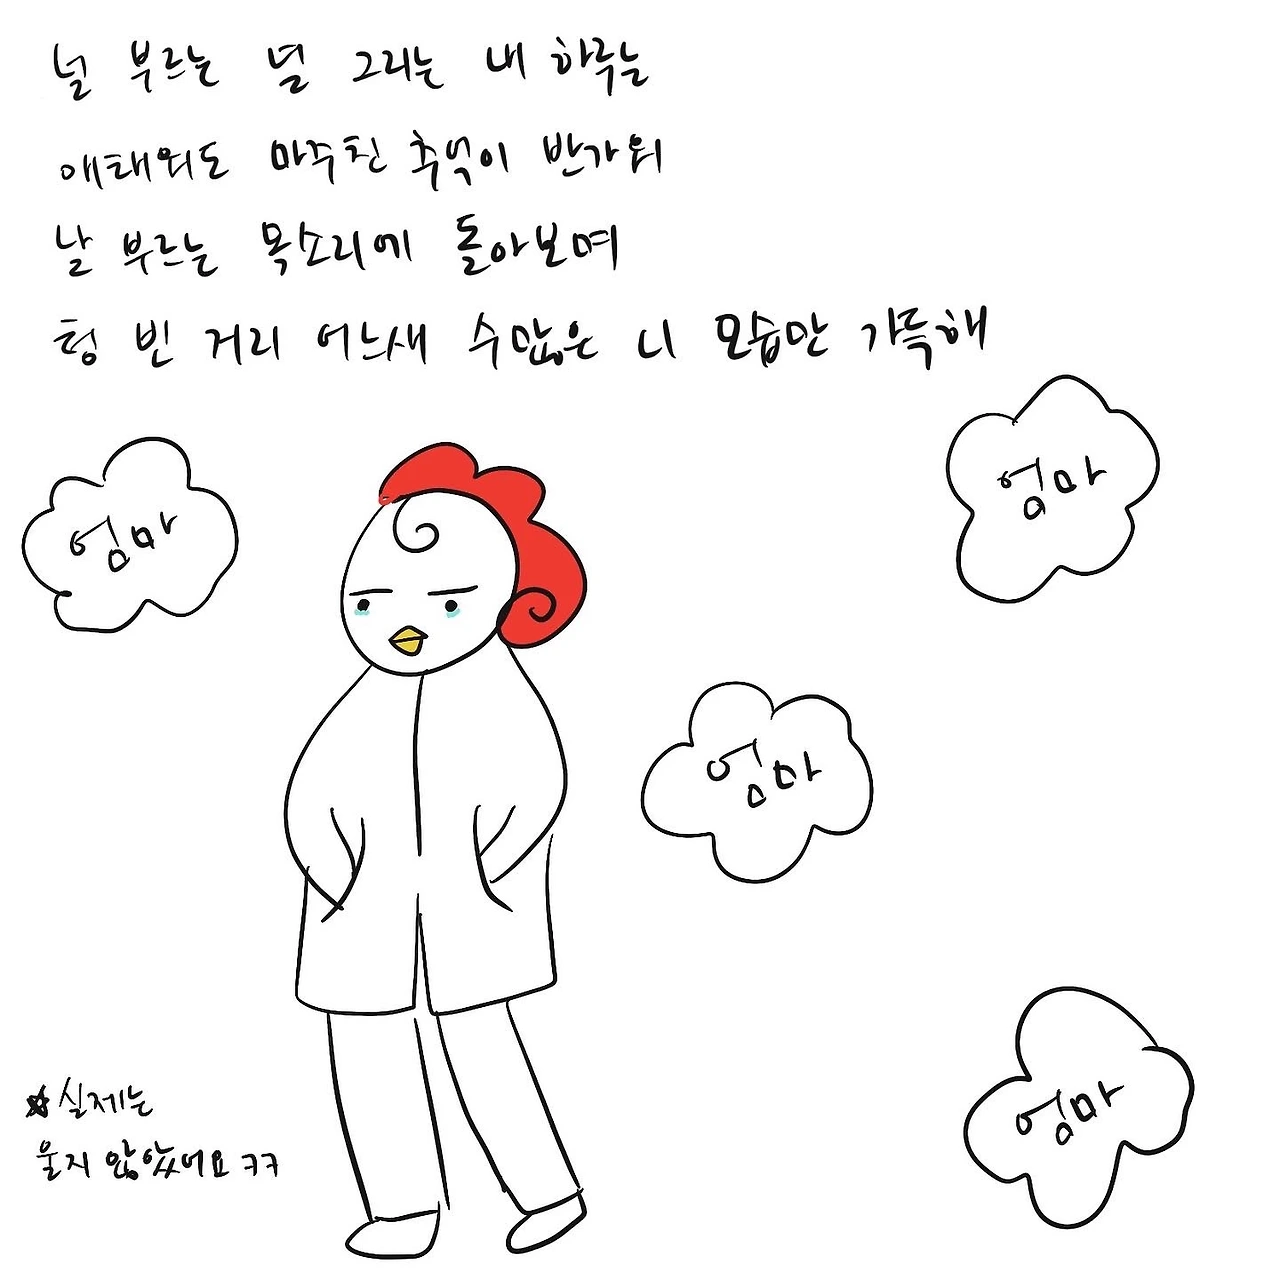 널 부르는 널 그리는 내 하루는
애태워도 마주친 추억이 반가워
날 부르는 목소리에 돌아보며
텅 빈 거리 어느새 수많은 니 모습만 가득해
엄마
엄마
엄마
엄마
★실제는
울지 않았어요 ㅋㅋ